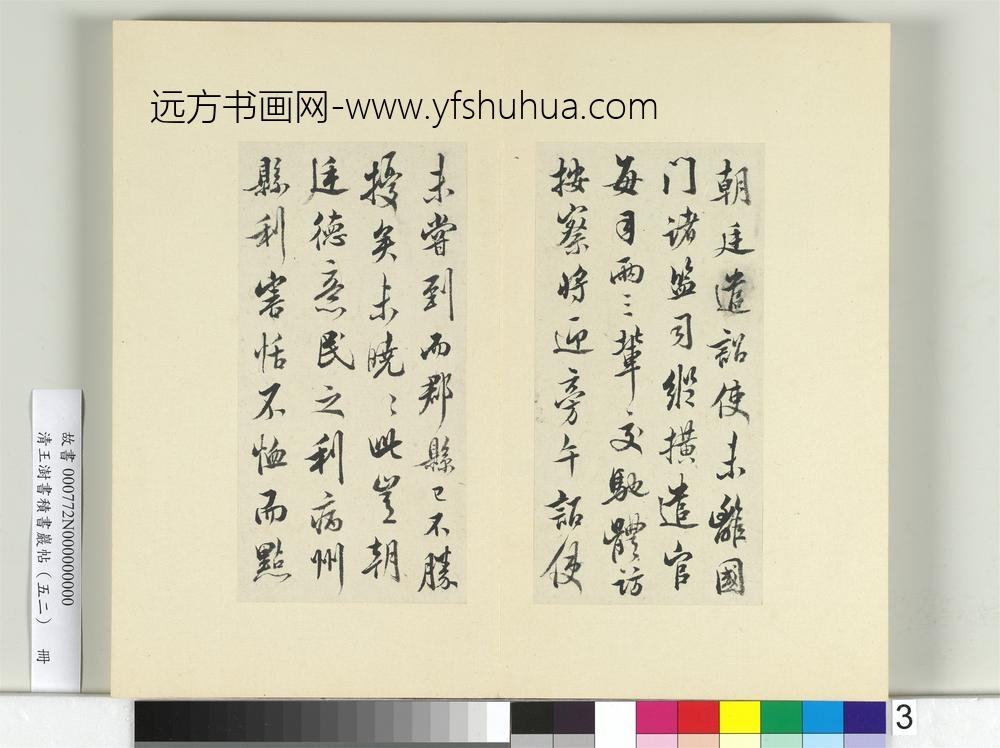 远方书画网-www.yfshuhua.com
朝廷遣詔使未離國
门诸监司纵横遣官
每月兩三輩交馳體訪
按察將迎旁午詔使
未嘗到而郡縣已不勝
擾矣未曉〻此豈朝
廷德意民之利病州
縣利害恬不恤而點
故書 000772N000000000
清王澍書積書巖帖（五二） 冊
3